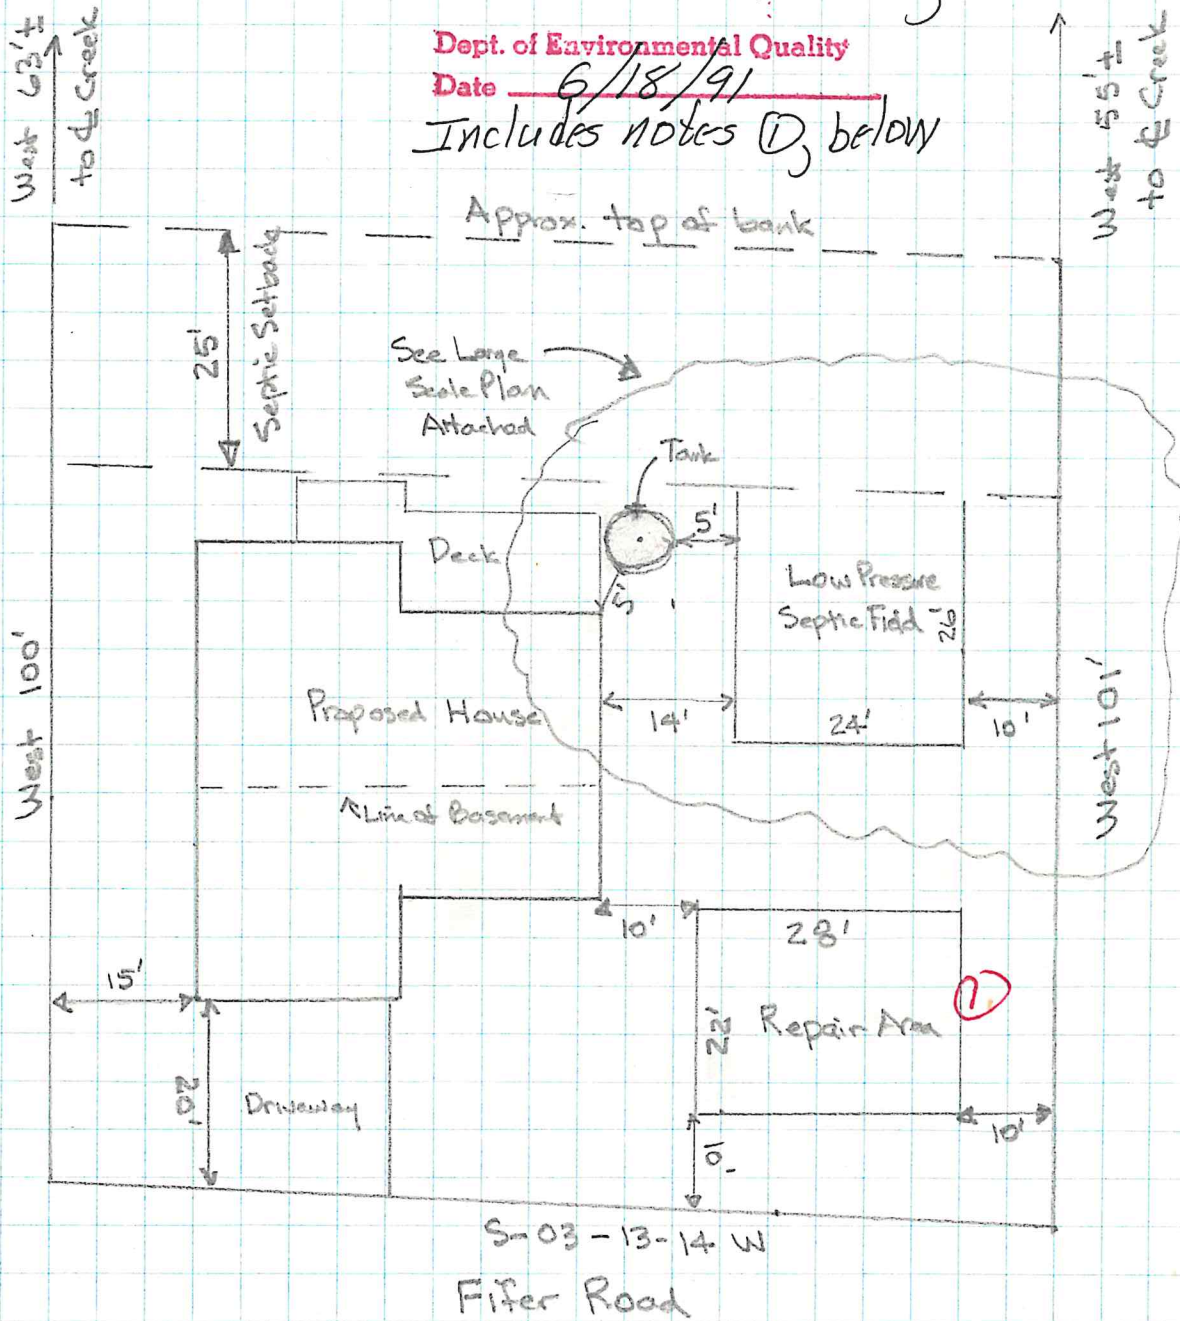 West 63'±
to ℄ Creek
Dept. of Environmental Quality
Date 6/18/91
Includes notes ①, below
West 55'±
to ℄ Creek
Approx. top of bank
25'
Septic Setback
See Large
Scale Plan
Attached
Tank
5'
Deck
5'
Low Pressure
Septic Field
26'
West 100'
Proposed House
14'
24'
10'
West 101'
Line of Basement
10'
28'
15'
22'
Repair Area
①
20'
Driveway
10'
10'
S-03-13-14 W
Fifer Road